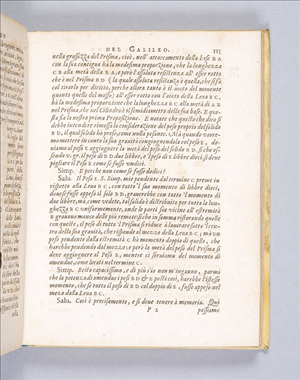 DEL GALILEO. 115
nella grossezza del Prisma, cioè, nell'attaccamento della base BA
con la sua contigua hà la medesima proporzione, che la lunghezza
CB alla metà della BA, e però l'assoluta resistenza all'esser rotto
che è nel Prisma BD (la quale assoluta resistenza è quella, che si fà
col tirarlo per diritto, perche allora tanto è il moto del mouente
quanto quello del mosso) all'esser rotto con l'aiuto della Leua BC,
hà la medesima proporzione che la lunghezza BC alla metà di AB
nel Prisma, che nel Cilindro è il semidiametro della sua base. E que-
sta sia la nostra prima Proposizione. E notate che questo che dico si
debbe intendere rimossa la considerazione del peso proprio del solido
BD, il qual solido hò preso, come nulla pesante. Mà quando vorre-
mo mettere in conto la sua grauità congiungendola col peso E, dob-
biamo al peso E aggiugnere la metà del peso del solido BD. sì che essen-
do v. gr. il peso di BD due libbre, e'l peso di E libbre dieci, si deue
pigliare il Peso E come se fusse vndici.
Simp. E perche non come se fusse dodici?
Salu. Il Peso E. S. Simp. mio pendente dal termine C preme in
rispetto alla Leua BC, con tutto 'l suo momento di libbre dieci,
doue se fusse appeso il solo BD, grauerebbe con tutto 'l momento di
due libbre, mà, come vedete, tal solido è distribuito per tutta la lun-
ghezza BC vniformemente, onde le parti sue vicine all'estremità
B grauano manco delle più remote; sì che in somma ristorando quelle
con queste, il peso di tutto 'l Prisma si riduce à lauorare sotto 'l cen-
tro della sua grauità, che risponde al mezzo della Leua BC; mà vn
peso pendente dalla estremità C hà momento doppio di quello, che
harebbe pendendo dal mezzo: e però la metà del peso del Prisma si
deue aggiugnere al Peso E, mentre ci seruiamo del momento di
amendue, come locati nel termine C.
Simp. Resto capacissimo, e di più s'io non m'inganno, parmi
che la potenza di amendui i pesi BD & E posti così, harebbe l'istesso
momento, che se tutto il peso di BD col doppio di E, fusse appeso nel
mezo della Leua BC.
Salu. Così è precisamente, e si deue tenere à memoria. Quì
P 2 possiamo